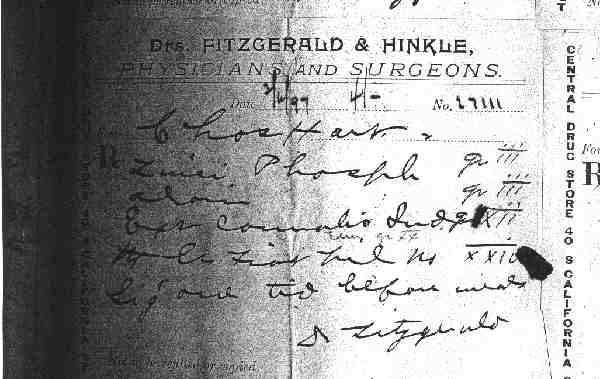 Drs. FITZGERALD & HINKLE,
PHYSICIANS AND SURGEONS.
Date 97 No. 27111
Chas Hart
R Zinci Phosph gr iii
Aloin gr iii
Ext Cannabis Ind gr xii
M ft pil No xxiv
Sig one tid before meals
Fitzgerald
Not to be repeated or copied.
CENTRAL DRUG STORE 40 S CALIFORNIA
R